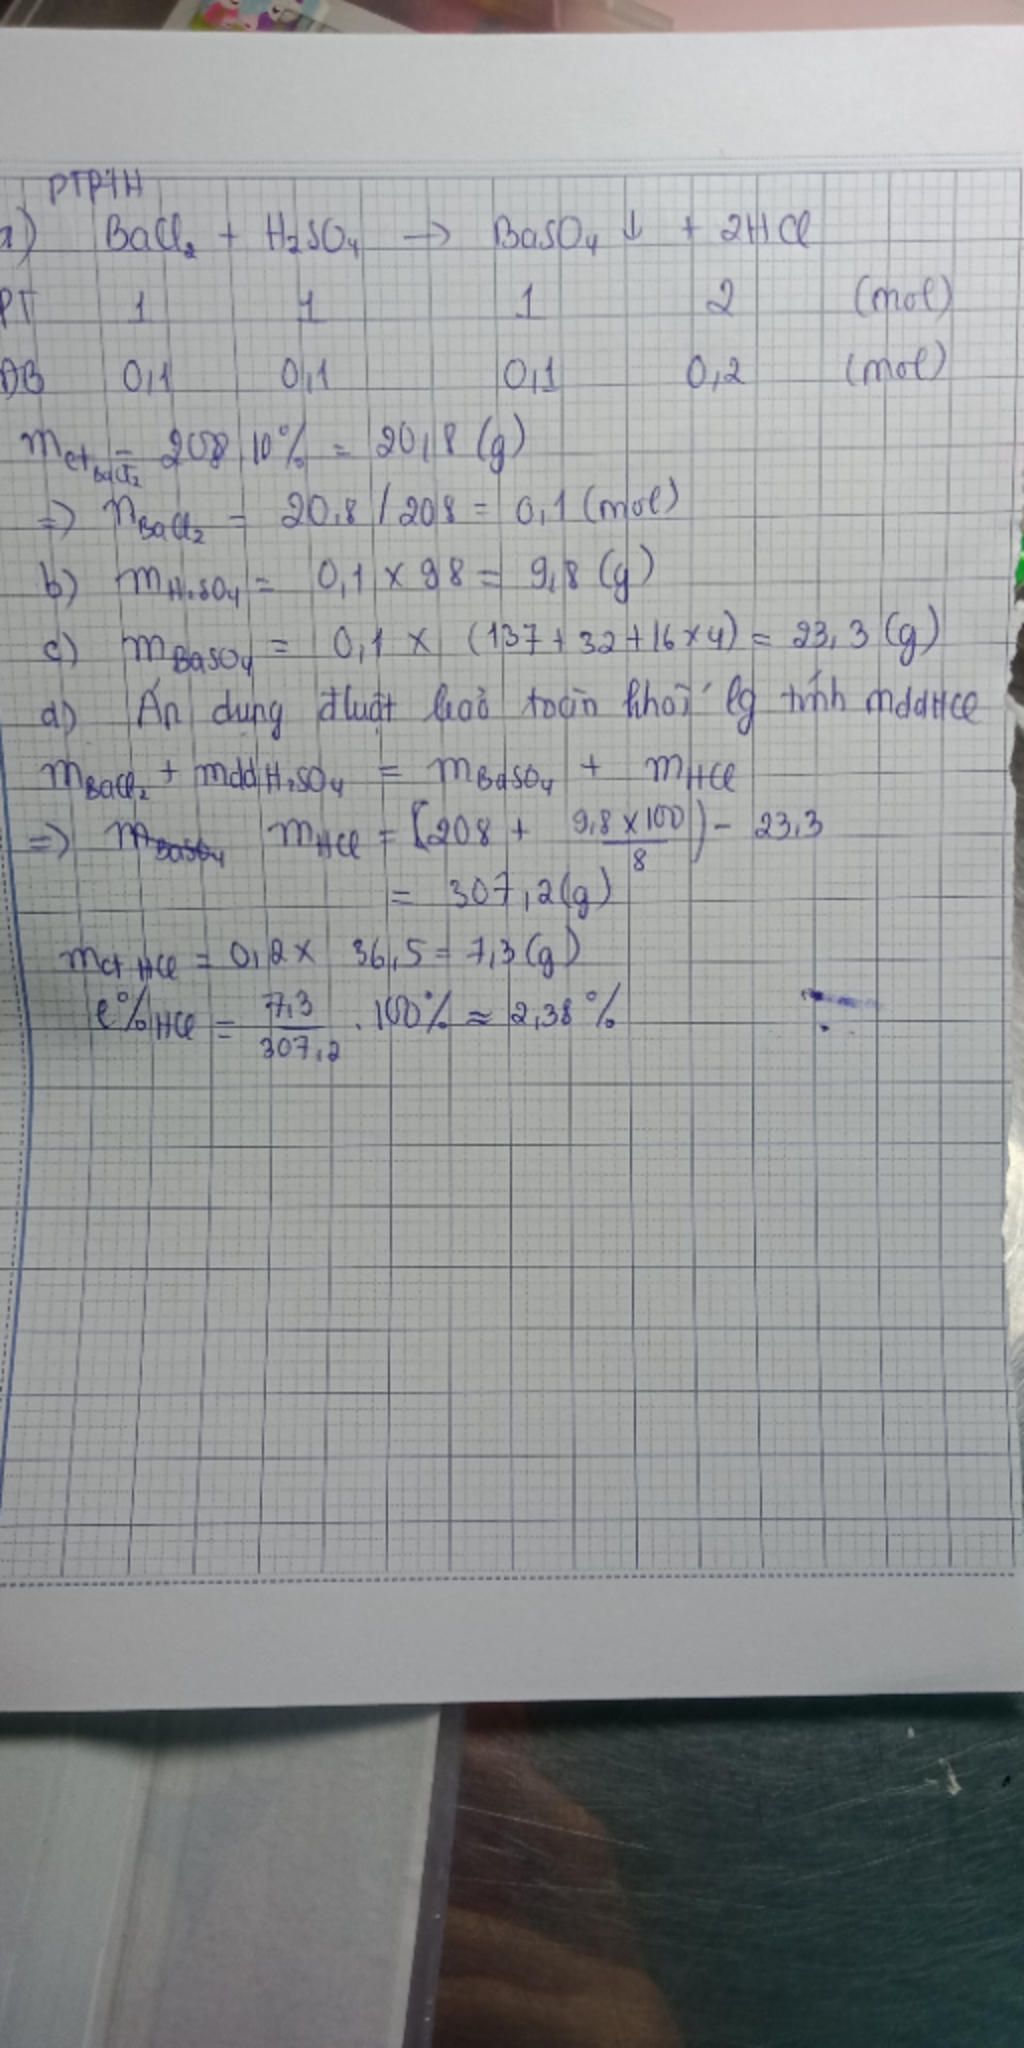 PTPƯH
a) BaCl2 + H2SO4 → BaSO4 ↓ + 2HCl
PT 1 1 1 2 (mol)
ĐB 0,1 0,1 0,1 0,2 (mol)
mctBaCl2 = 208 10% = 20,8 (g)
=> nBaCl2 = 20,8 / 208 = 0,1 (mol)
b) mH2SO4 = 0,1 × 98 = 9,8 (g)
c) mBaSO4 = 0,1 × (137 + 32 + 16 × 4) = 23,3 (g)
d) Áp dụng đluật bảo toàn khối lg tính mddHCl
mBaCl2 + mddH2SO4 = mBaSO4 + mHCl
=> mHCl = (208 + 9,8 × 100 / 8) - 23,3
= 307,2 (g)
mct HCl = 0,2 × 36,5 = 7,3 (g)
C%HCl = 7,3 / 307,2 . 100% ≈ 2,38 %